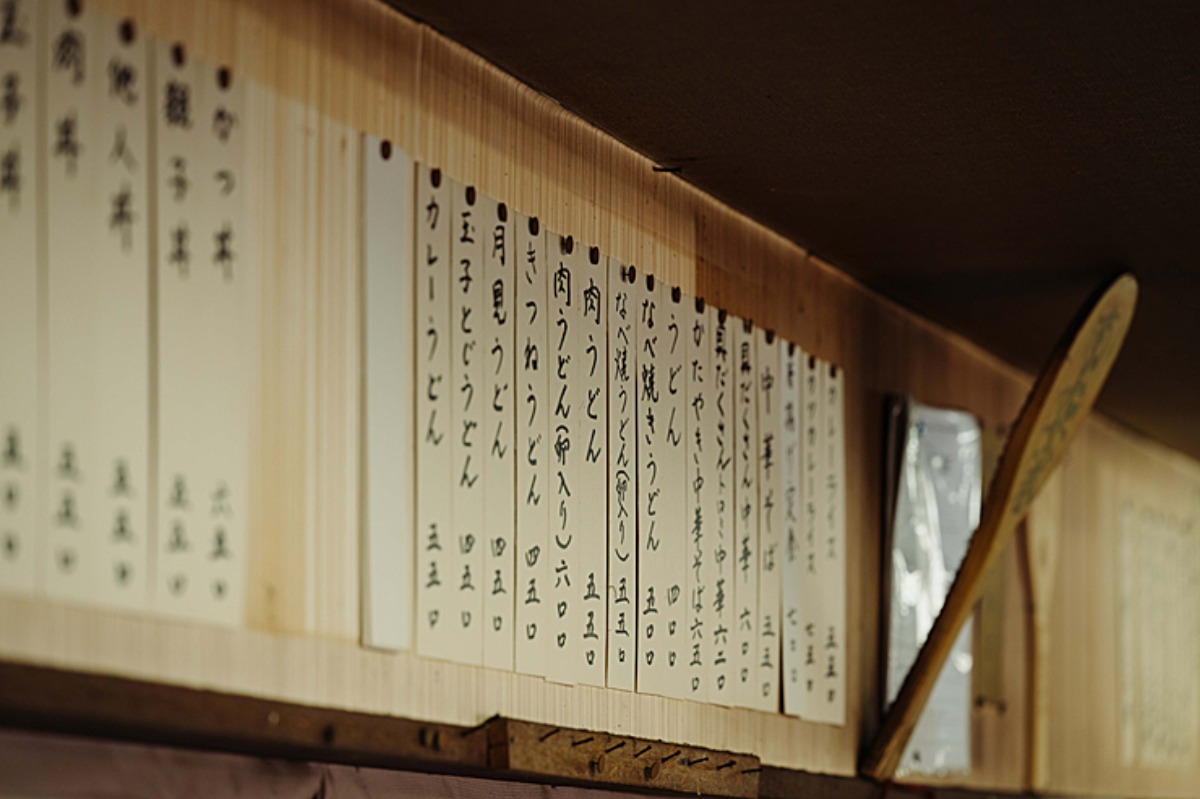 カレーライス 五五〇
カツカレーライス 七五〇
中華そば 五五〇
具だくさん中華 六〇〇
具だくさんトロミ中華 六二〇
かたやき中華そば 六五〇
うどん 四〇〇
なべ焼きうどん 五〇〇
なべ焼うどん(卵入り) 五五〇
肉うどん 五五〇
肉うどん(卵入り) 六〇〇
きつねうどん 四五〇
月見うどん 四五〇
玉子とじうどん 四五〇
カレーうどん 五五〇
かつ丼 六五〇
親子丼 五五〇
他人丼 五五〇
肉丼 五五〇
玉子丼